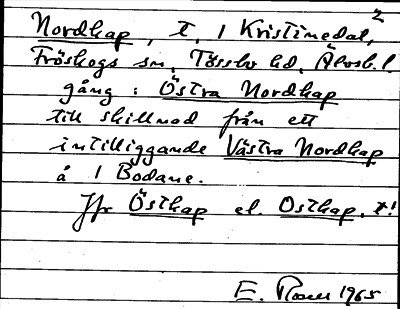 2
Nordkap, t. 1 Kristinedal,
Fröskogs sn, Tössbo hd, Älvsb. l.
gång: Östra Nordkap
till skillnad från ett
intilliggande Västra Nordkap
å 1 Bodane.
Jfr Östkap el. Ostkap, t!
E. Rosell 1965